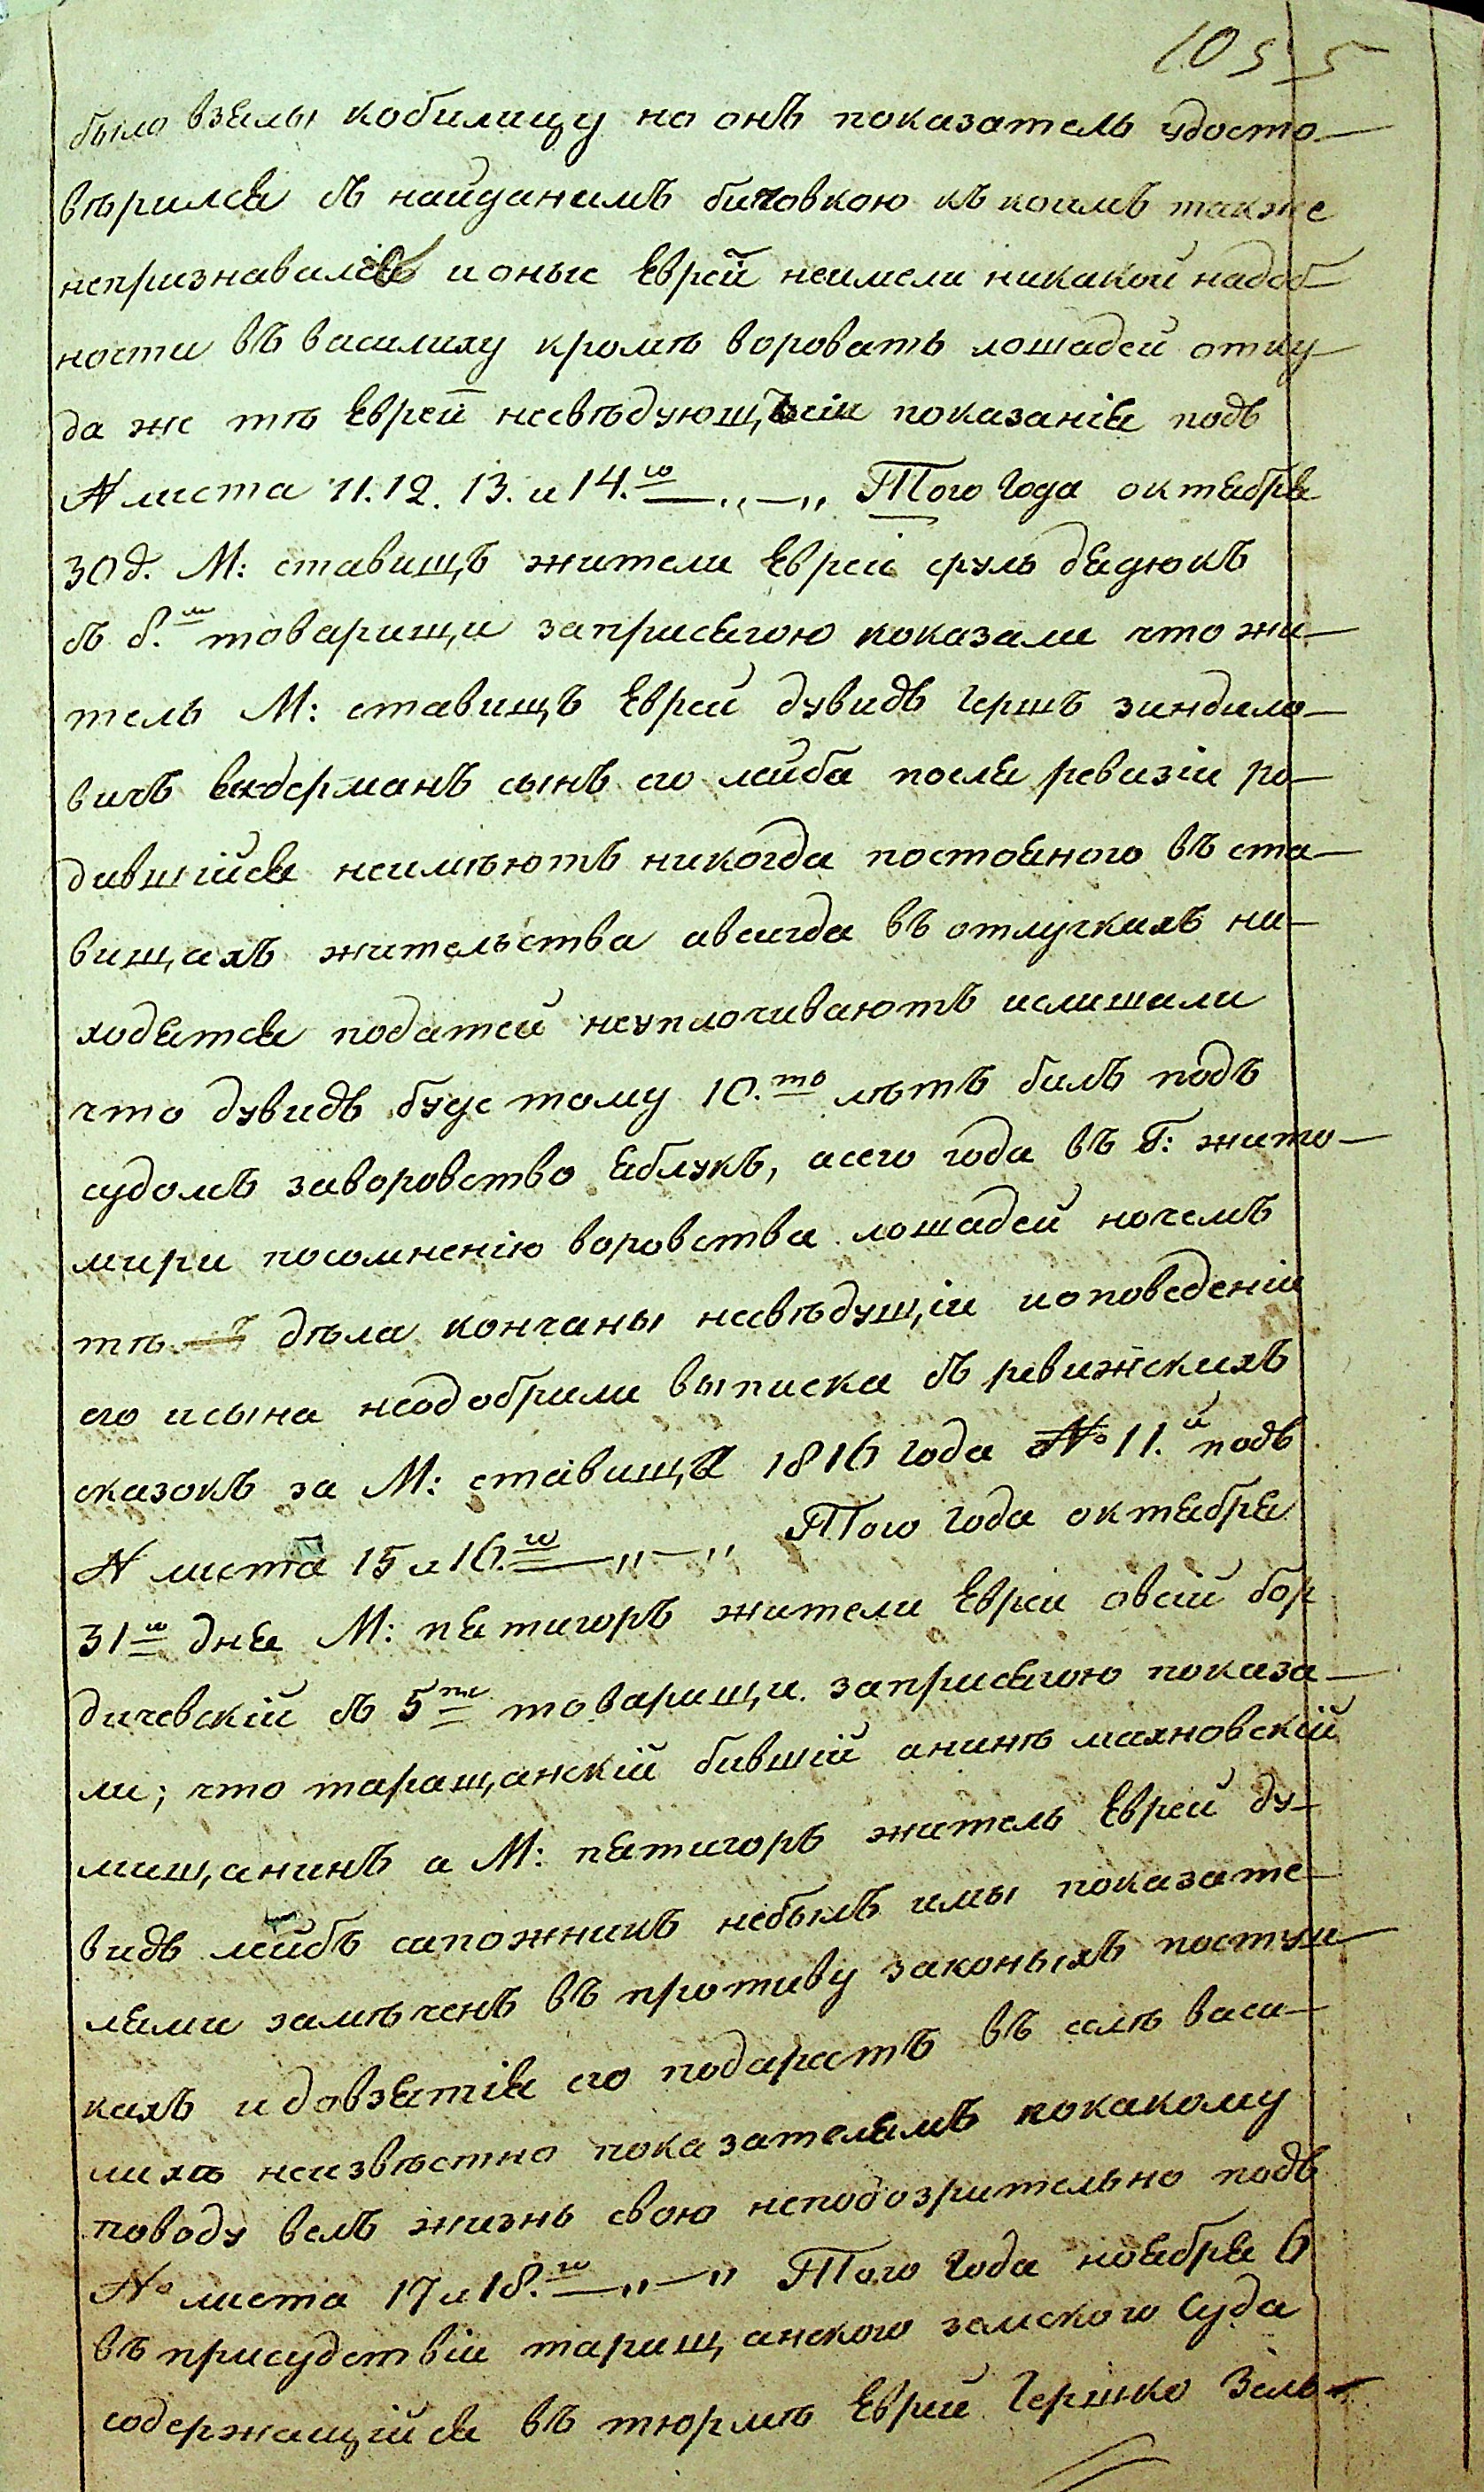 105 5
было взялы кобилицу но онъ показатель удосто-
вѣрился съ найданимъ бичовкою къ коимъ также
непризнавался и оные Еврей неимели никакой надоб-
ности въ василиху кромѣ воровать лошадей отку-
да же тѣ Еврей несвѣдующъіи показанія подъ
№ листа 11. 12. 13. и 14.го —„—„ Того Года октября
30 д. М: ставищъ жители Евреи сруль бадюкъ
съ 8.ми товарищи заприсягою показали что жи-
тель М: ставищъ Еврей дувидъ Гершъ зиндило-
вичъ сынъ его лейба после ревизіи ро-
дившійся неимѣютъ никогда постояного въ ста-
вищахъ жительства авсигда въ отлучкахъ на-
ходятся податей неуплочиваютъ ислишали
что дувидъ буде тому 10.ть лѣтъ билъ подъ
судомъ заворовство яблукъ, асего года въ Г: жито-
мири посомненію воровства лошадей ночемъ
тѣ дѣла кончаны несвѣдущіи иоповеденіи
его исына неодобрили выписка съ ревижскихъ
сказокъ за М: ставища 1816 года № 11.й подъ
№ листа 15 и 16.го —„—„ Того Года октября
31го дня М: пятигоръ жители Евреи овсій бор
дичевскій съ 5ти товарищи заприсягою показа-
ли; что таращанскій бившій анинѣ махновскій
мищанинъ а М: пятигоръ житель Еврей ду-
видъ лейбъ сапожникъ небылъ имы показате-
лями замѣченъ въ противу законыхъ поступ-
кахъ идовзятія его подарестъ въ селѣ васи-
лихѣ неизвѣстно показателямъ покакому
поводу велъ жизнь свою неподозрительно подъ
№ листа 17 и 18.го —„—„ Того Года ноября 6
въ присудствіи таращанского земского Суда
содержащійся въ тюрмѣ Еврей Гершко Зель-